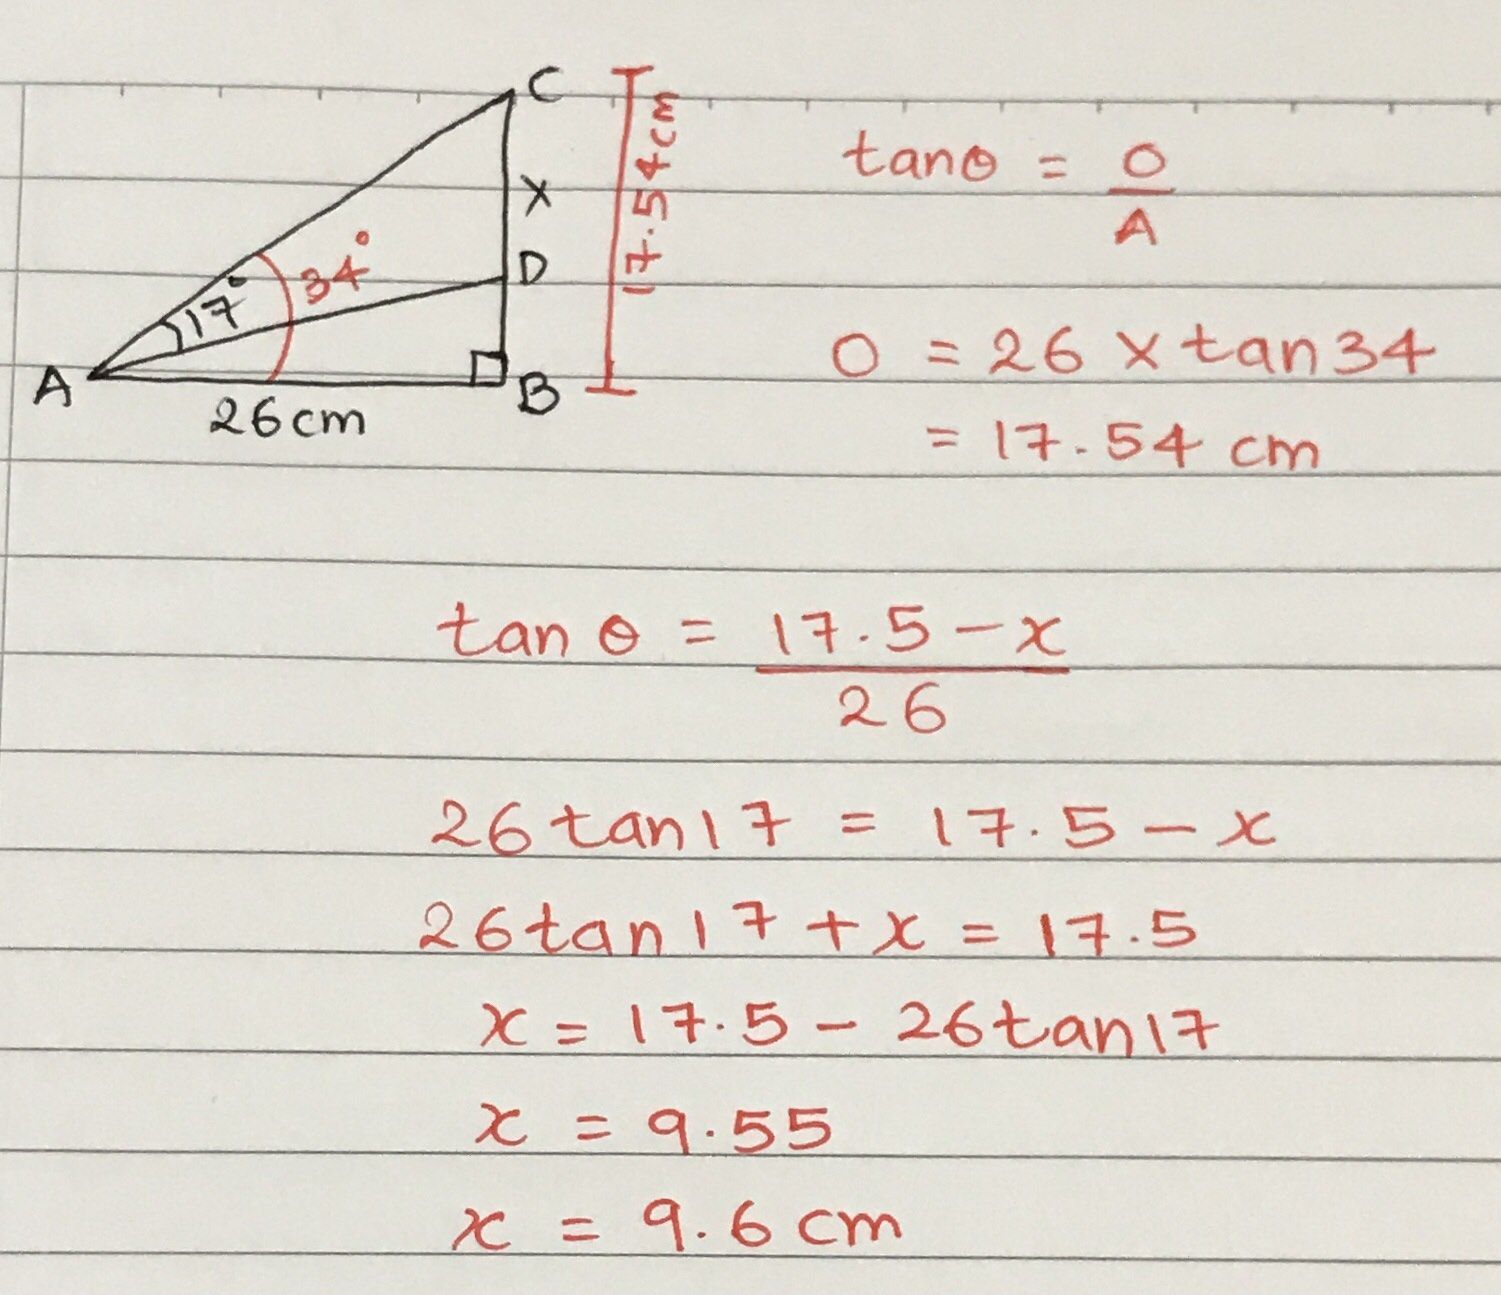 C
17.54cm
X
D
17°
34°
A
B
26cm
tanθ = O
A
O = 26 × tan34
= 17.54 cm
tan θ = 17.5 - x
26
26tan17 = 17.5 - x
26tan17 + x = 17.5
x = 17.5 - 26tan17
x = 9.55
x = 9.6 cm